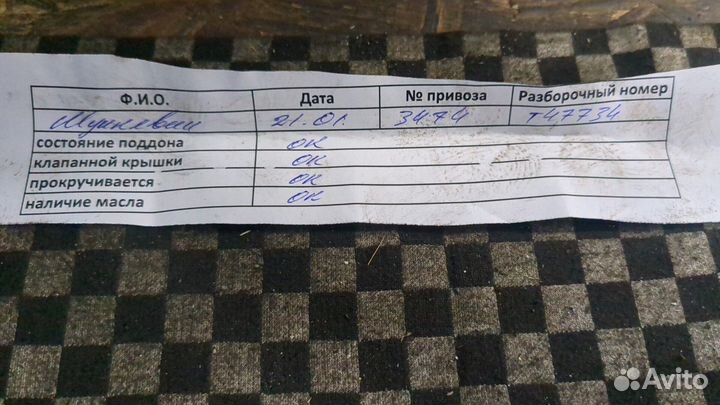 Ф.И.О. Дата № привоза Разборочный номер
21.01. 3474 Т47734
состояние поддона ок
клапанной крышки ок
прокручивается ок
наличие масла ок
Avito